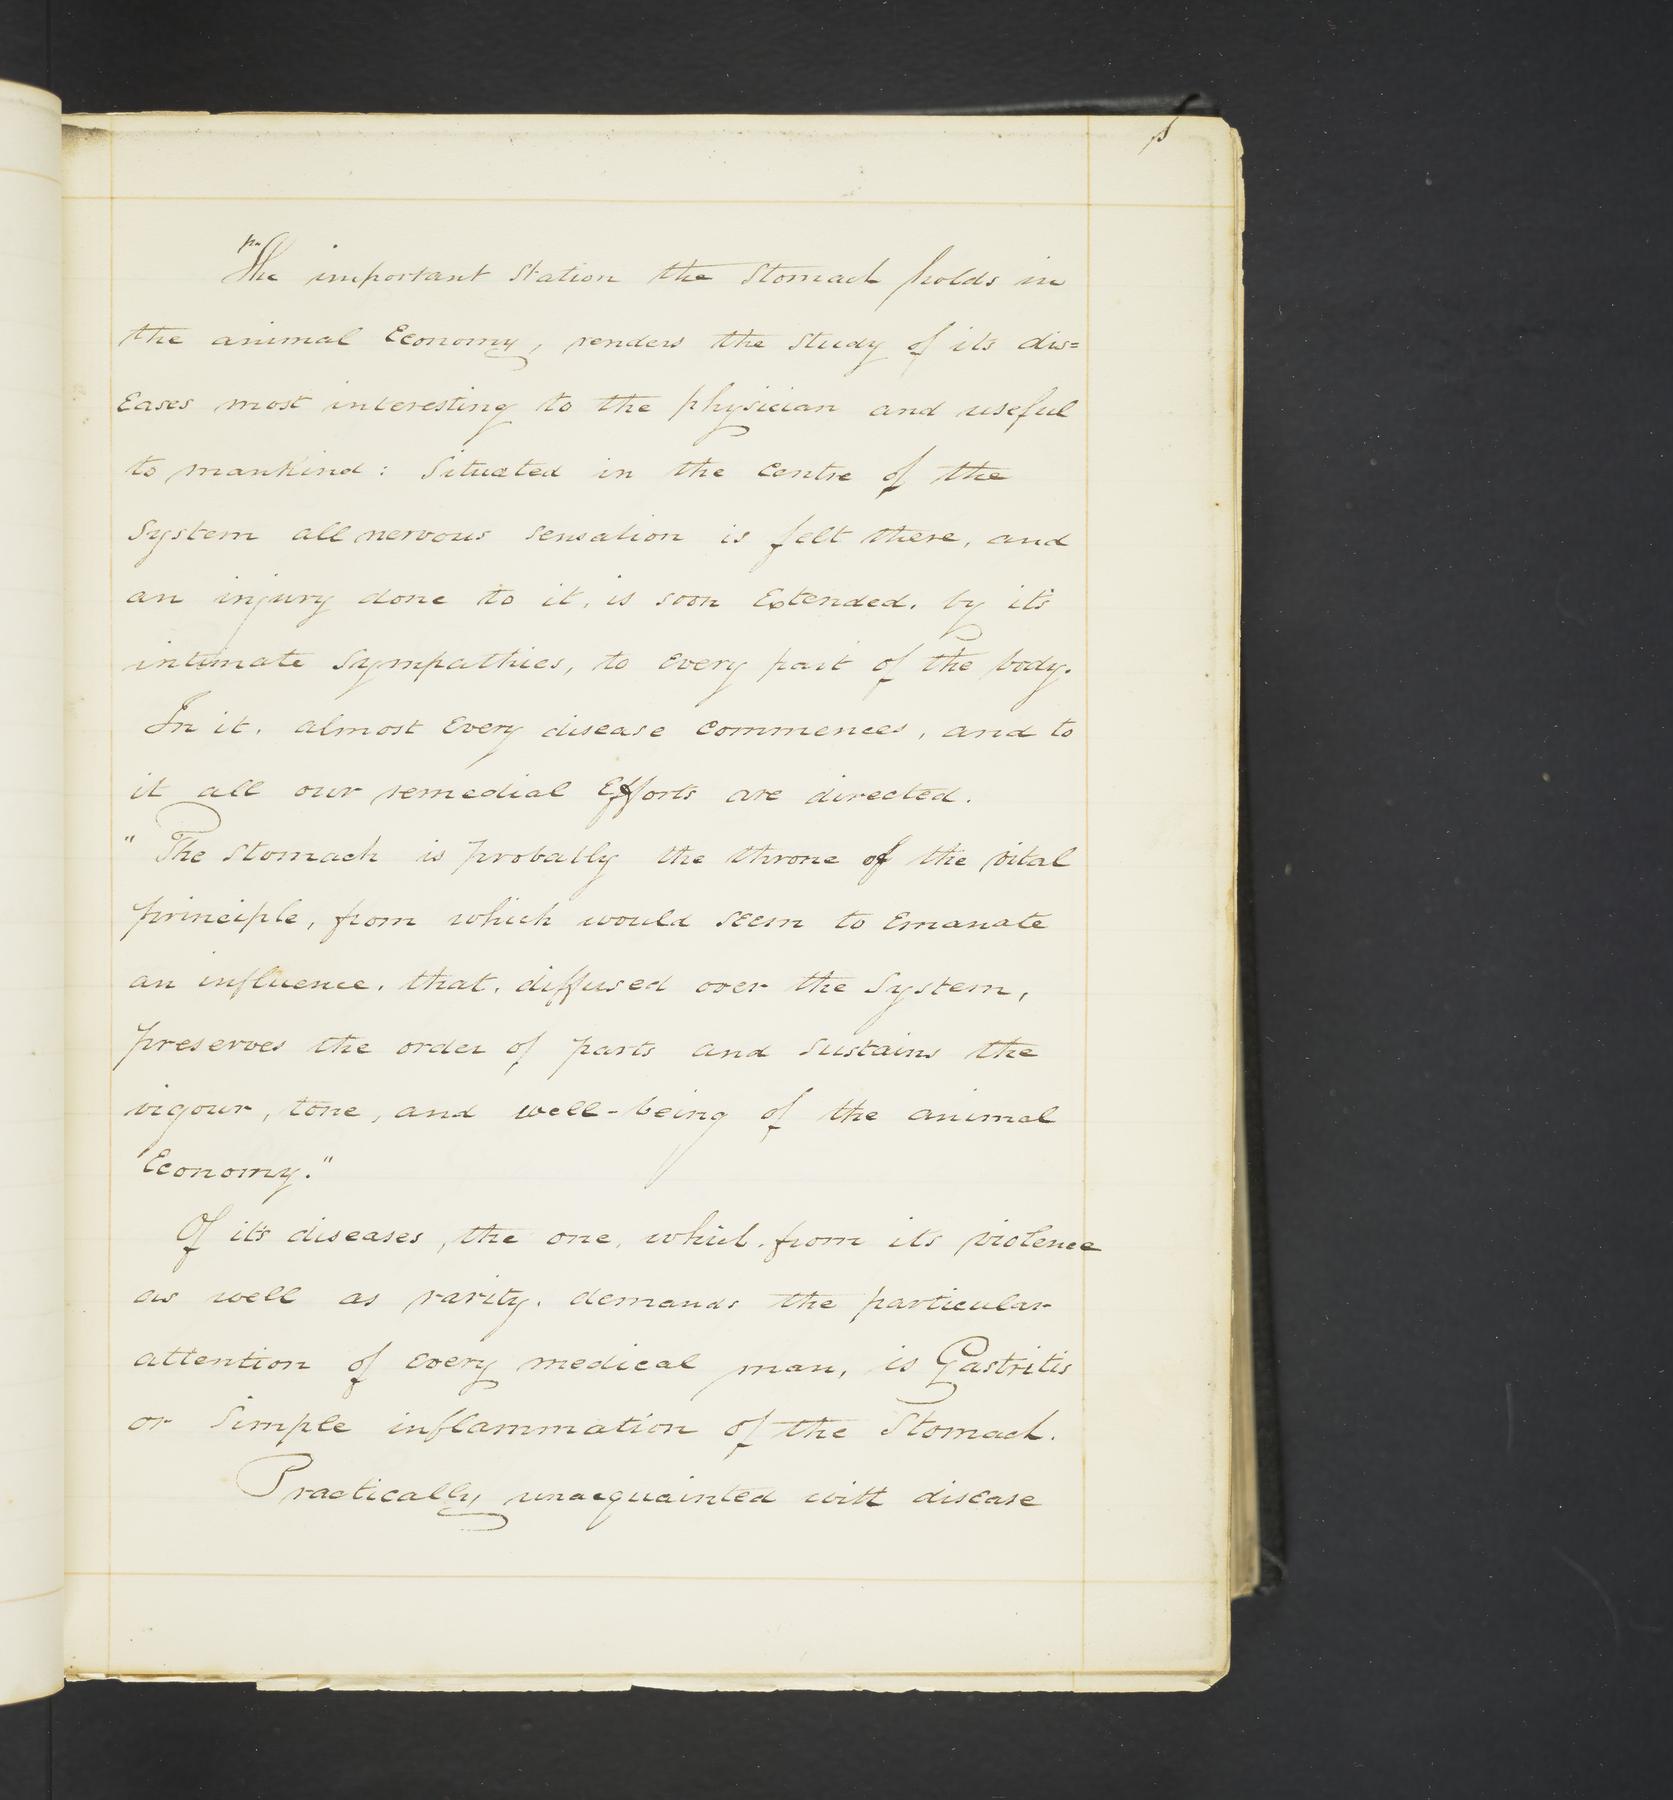 The important station the stomach holds in
the animal Economy, renders the study of its dis=
eases most interesting to the physician and useful
to mankind: Situated in the centre of the
System all nervous sensation is felt there, and
an injury done to it, is soon Extended, by it's
intimate Sympathies, to every part of the body.
In it, almost Every disease commences, and to
it all our remedial Efforts are directed.
"The stomach is probably the throne of the vital
principle, from which would seem to Emanate
an influence, that, diffused over the System,
preserves the order of parts and sustains the
vigour, tone, and well-being of the animal
Economy."
Of it's diseases, the one, which, from it's violence
as well as rarity, demands the particular
attention of every medical man, is Gastritis
or Simple inflammation of the Stomach.
Practically unacquainted with disease